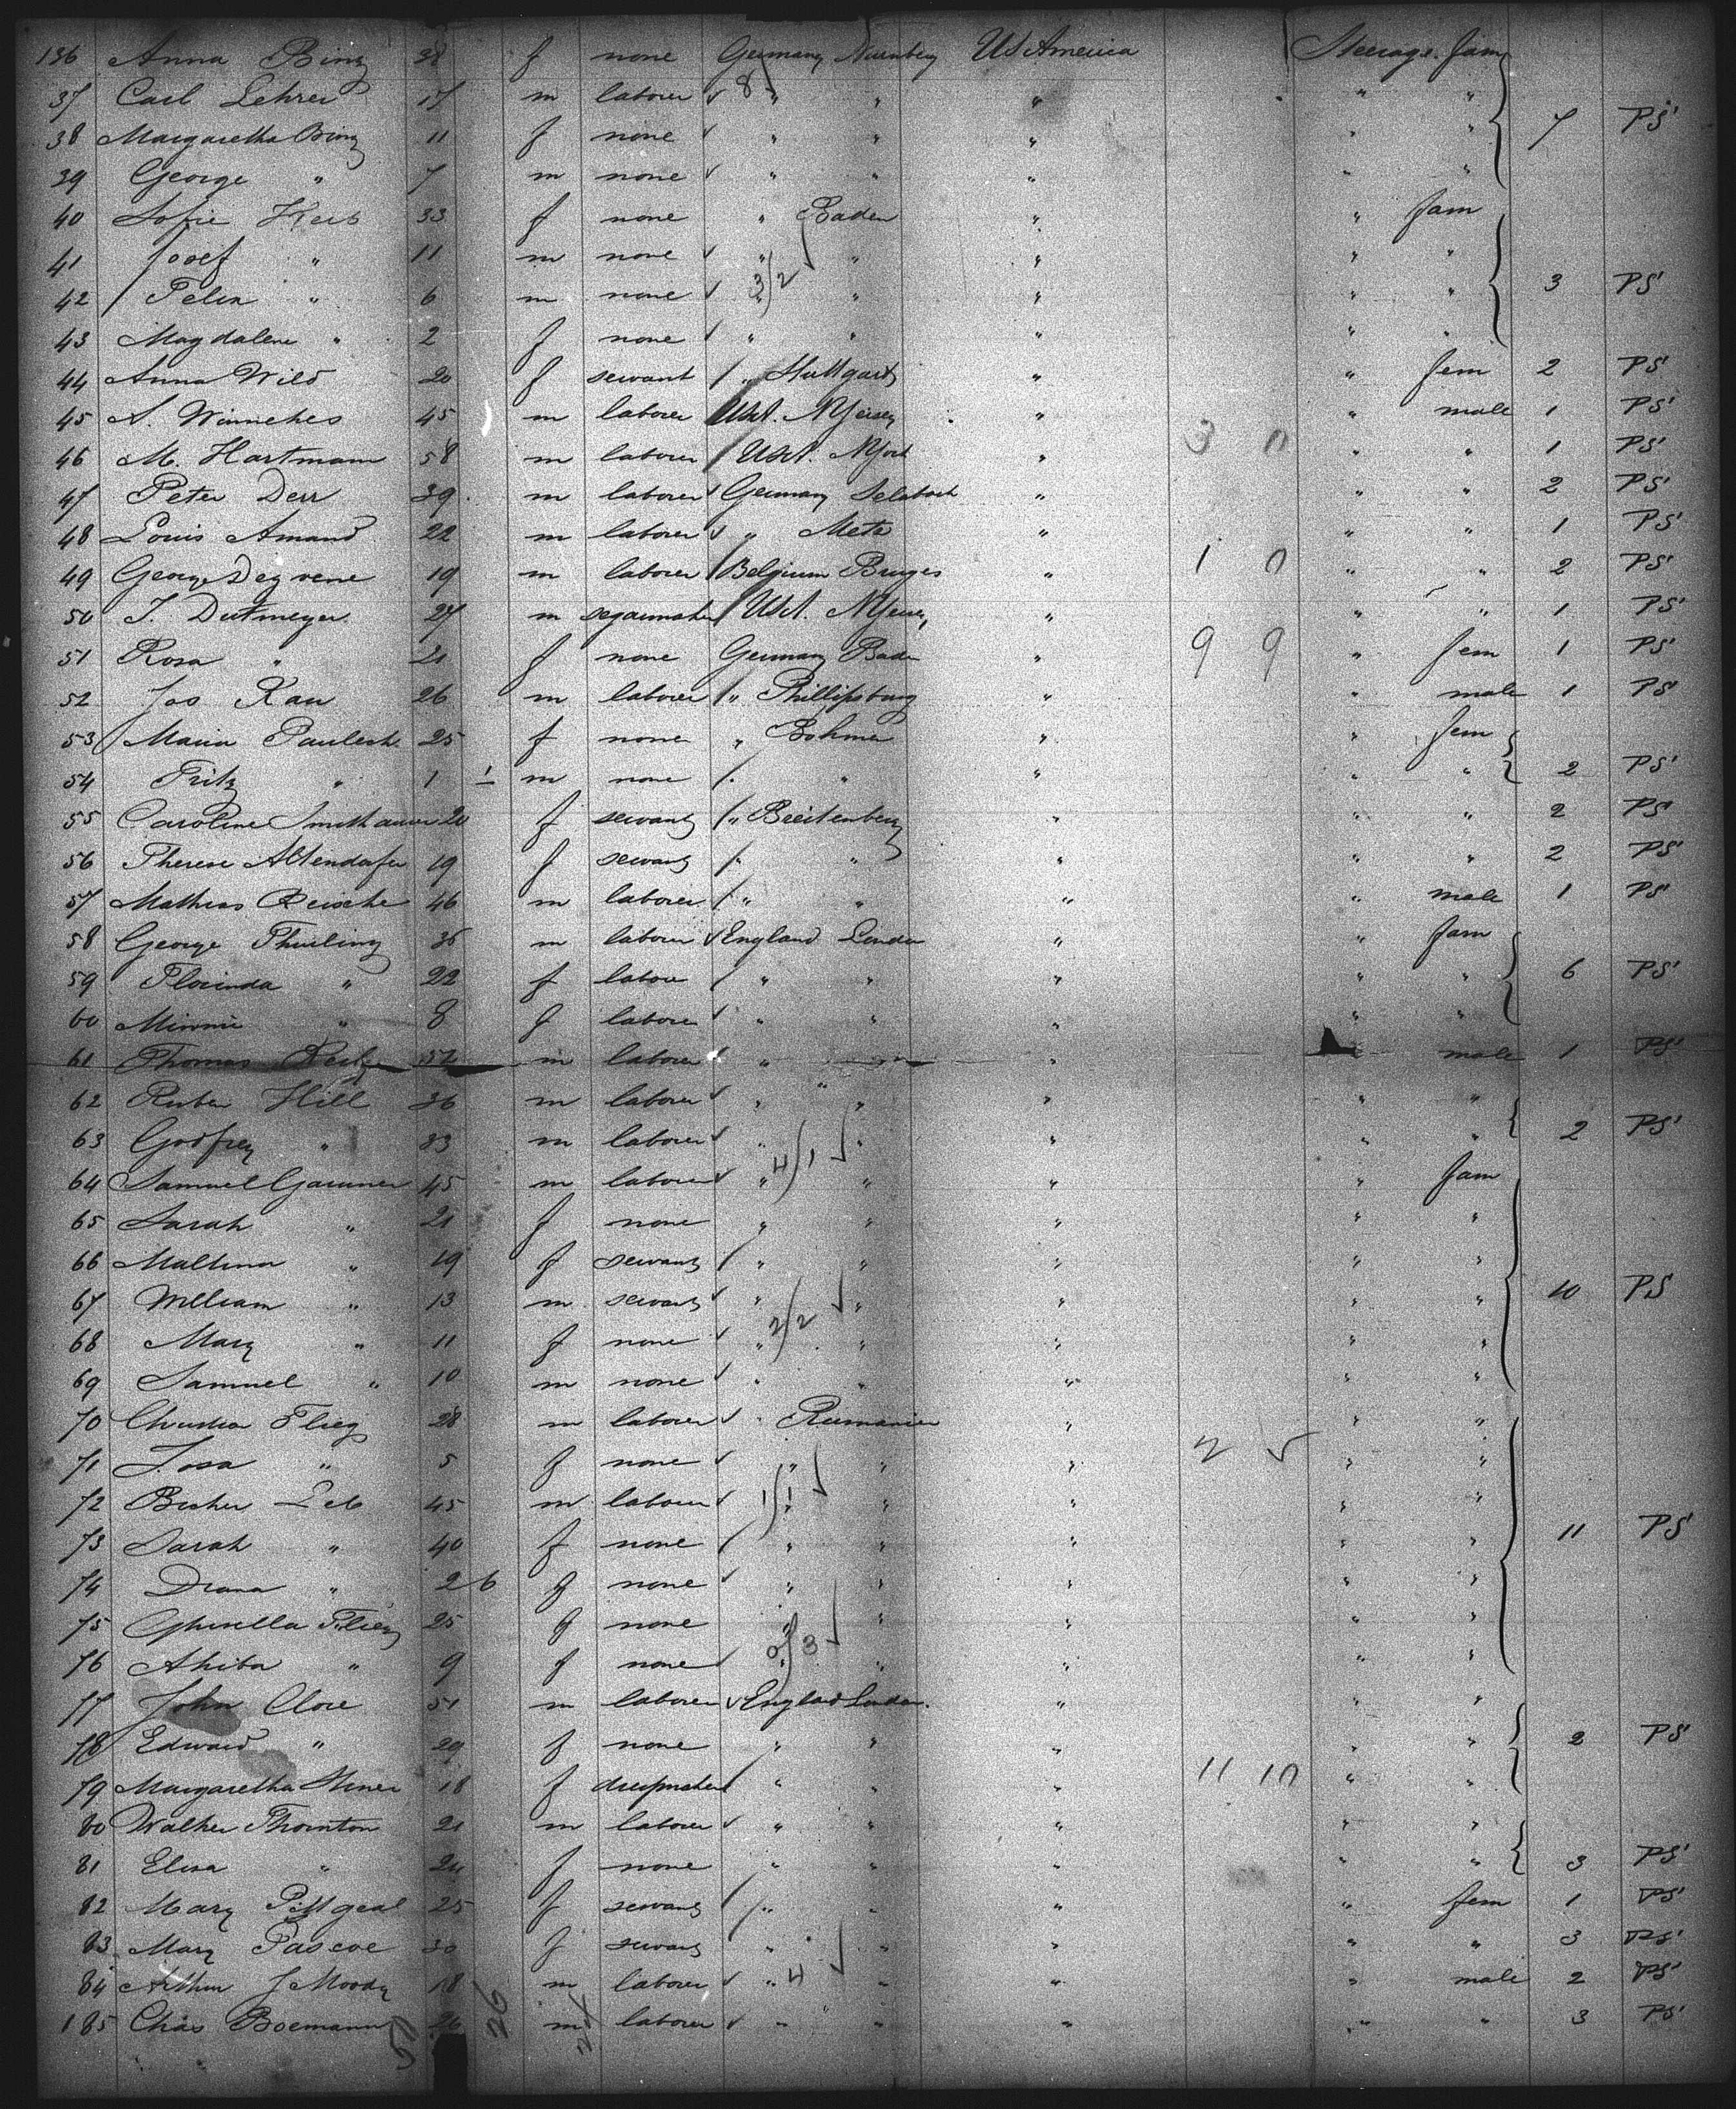 136 Anna Binz 38 f none Germany Nurnberg US America Steerage fam
37 Carl Lehrer 17 m laborer " " " " "
38 Margaretha Binz 11 f none " " " " " 7 PS
39 George " 7 m none " " " " "
40 Sofie 33 f none " Baden " " fam
41 Josef " 11 m none " " " " "
42 Felix " 6 m none " " " " " 3 PS
43 Magdalene " 2 f none " " " " "
44 Anna Wild 20 f servant " Stuttgart " " fem 2 PS
45 A. Winnehes 45 m laborer USA. NJersey " " male 1 PS
46 M. Hartmann 58 m laborer USA. NYork " 3 0 " " 1 PS
47 Peter Derr 39 m laborer Germany " " " 2 PS
48 Louis Amand 22 m laborer " Metz " " " 1 PS
49 George 19 m laborer Belgium Bruges " 1 0 " " 2 PS
50 J. Dutmeyer 27 m segarmaker USA. NJersey " " " 1 PS
51 Rosa " 21 f none Germany Baden " 9 9 " fem 1 PS
52 Jos Rau 26 m laborer " Phillipsburg " " male 1 PS
53 Maria 25 f none " Bohmen " " fem
54 Fritz " 1 m none " " " " " 2 PS
55 Caroline 20 f servant " Breitenberg " " " 2 PS
56 Therese Altendorfer 19 f servant " " " " " 2 PS
57 Mathias Reische 46 m laborer " " " " male 1 PS
58 George Thurling 36 m laborer England London " " fam
59 Florinda " 22 f labor " " " " " 6 PS
60 Minnie " 8 f laborer " " " " "
61 Thomas 52 m laborer " " " " male 1 PS
62 Ruben Hill 36 m laborer " " " " "
63 Godfrey " 33 m laborer " " " " " 2 PS
64 Samuel 45 m laborer " " " " fam
65 Sarah " 21 f none " " " " "
66 " 19 f servant " " " " "
67 William " 13 m servant " " " " " 10 PS
68 Mary " 11 f none " " " " "
69 Samuel " 10 m none " " " " "
70 28 m laborer " Rumanien " " "
71 " 5 f none " " " " "
72 Leb 45 m laborer " " " " "
73 Sarah " 40 f none " " " " " 11 PS
74 " 26 f none " " " " "
75 25 f none " " " " "
76 Akiba " 9 f none " " " " "
77 John Clore 51 m laborer England London " " "
78 Edward " 29 f none " " " " " 2 PS
79 Margaretha 18 f " " " 11 10 " "
80 Walter Thornton 21 m laborer " " " " "
81 Elisa " 24 f none " " " " " 3 PS
82 Mary 25 f servant " " " " fem 1 PS
83 Mary Pascoe 30 f servant " " " " " 3 PS
84 Arthur J Moody 18 m laborer " " " " male 2 PS
185 Chas Boemann 26 m laborer " " " " " 3 PS